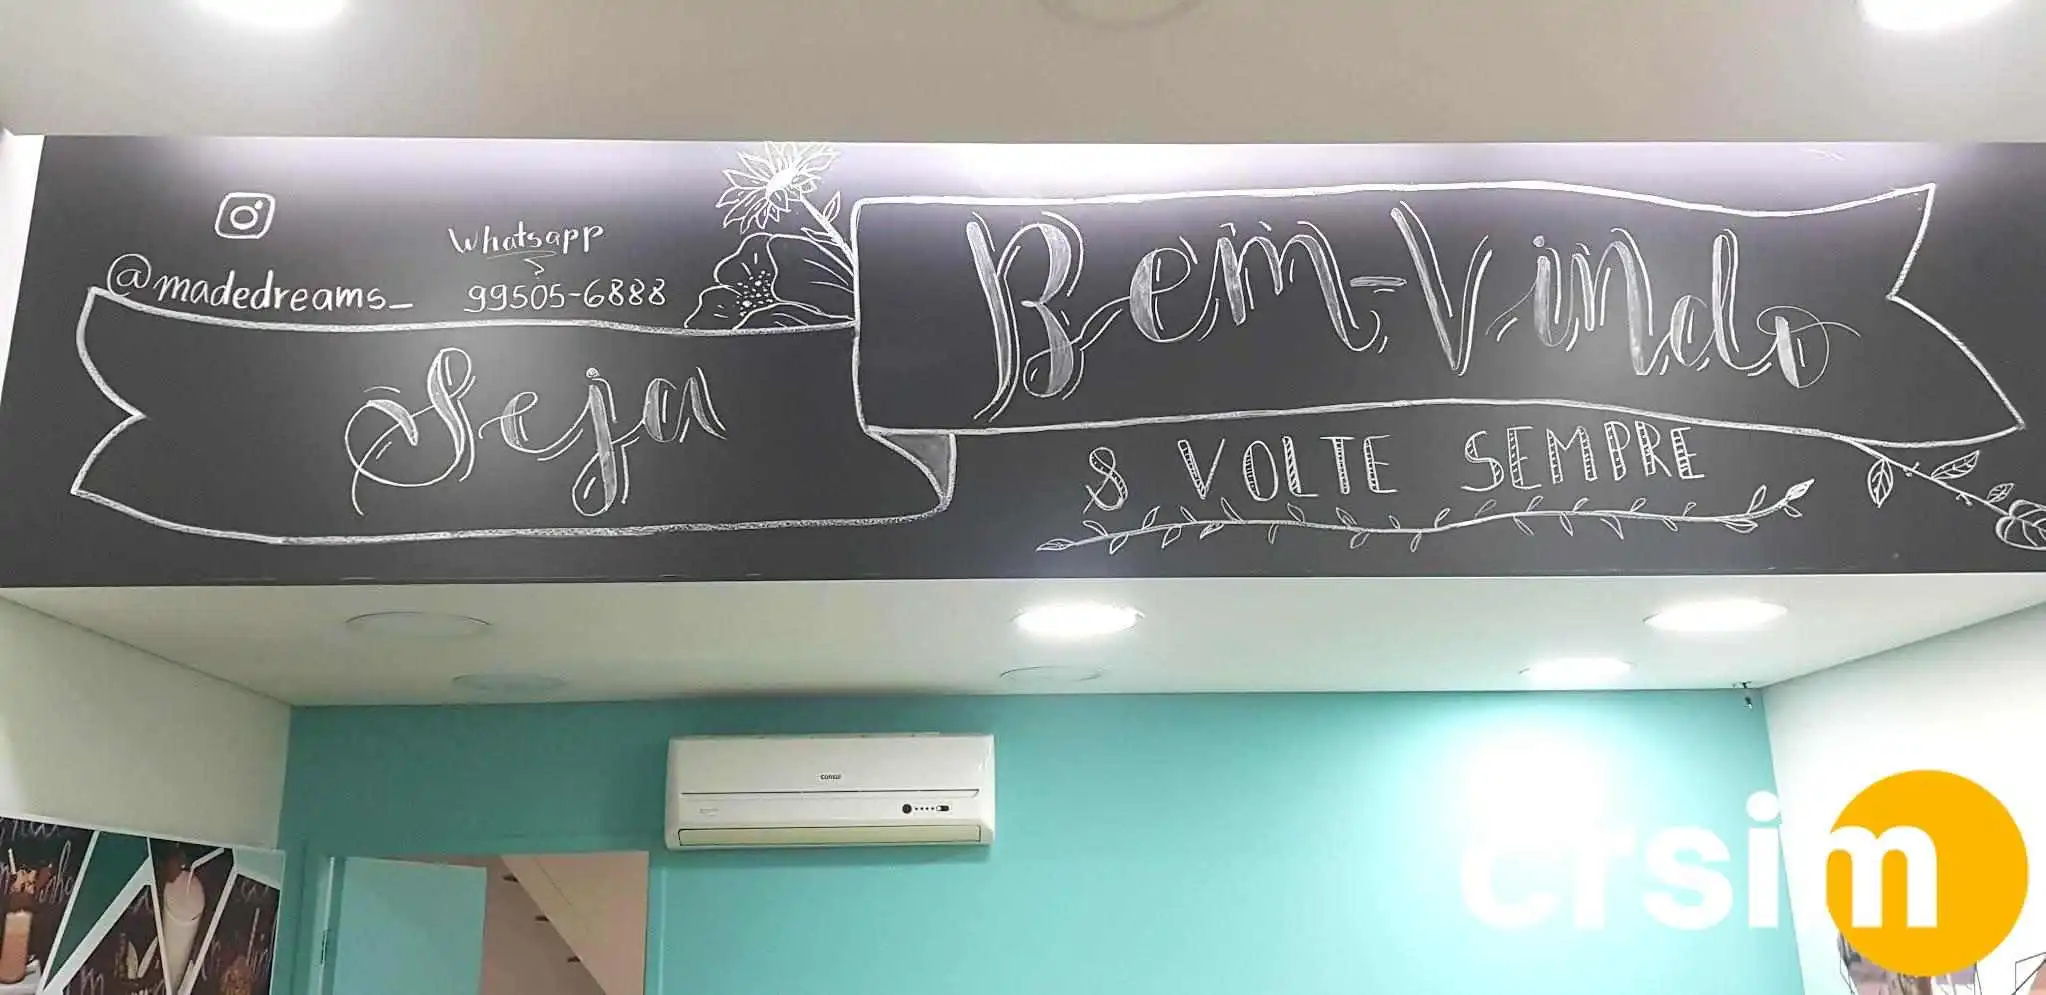 @madedreams_
Whatsapp
99505-6888
Seja
Bem-Vindo
& VOLTE SEMPRE
consul
crsim